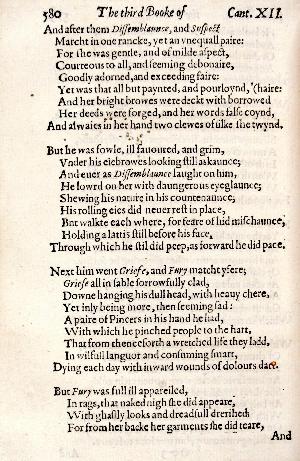 580 The third Booke of Cant. XII.
And after them Dissemblaunce, and Suspect
Marcht in one rancke, yet an vnequall paire:
For she was gentle, and of milde aspect,
Courteous to all, and seeming debonaire,
Goodly adorned, and exceeding faire:
Yet was that all but paynted, and pourloynd,
'haire:
And her bright browes were deckt with borrowed
Her deeds were forged, and her words false coynd,
And alwaies in her hand two clewes of silke she twynd.
But he was fowle, ill fauoured, and grim,
Vnder his eiebrowes looking still askaunce;
And euer as Dissemblaunce laught on him,
He lowrd on her with daungerous eyeglaunce;
Shewing his nature in his countenaunce;
His rolling eies did neuer rest in place,
But walkte each where, for feare of hid mischaunce,
Holding a lattis still before his face,
Through which he stil did peep, as forward he did pace.
Next him went Griefe, and Fury matcht yfere;
Griefe all in sable sorrowfully clad,
Downe hanging his dull head, with heauy chere,
Yet inly being more, then seeming sad:
A paire of Pincers in his hand he had,
With which he pinched people to the hart,
That from thenceforth a wretched life they ladd,
In wilfull languor and consuming smart,
Dying each day with inward wounds of dolours dart.
But Fury was full ill appareiled,
In rags, that naked nigh she did appeare,
With ghastly looks and dreadfull drerihed;
For from her backe her garments she did teare,
And